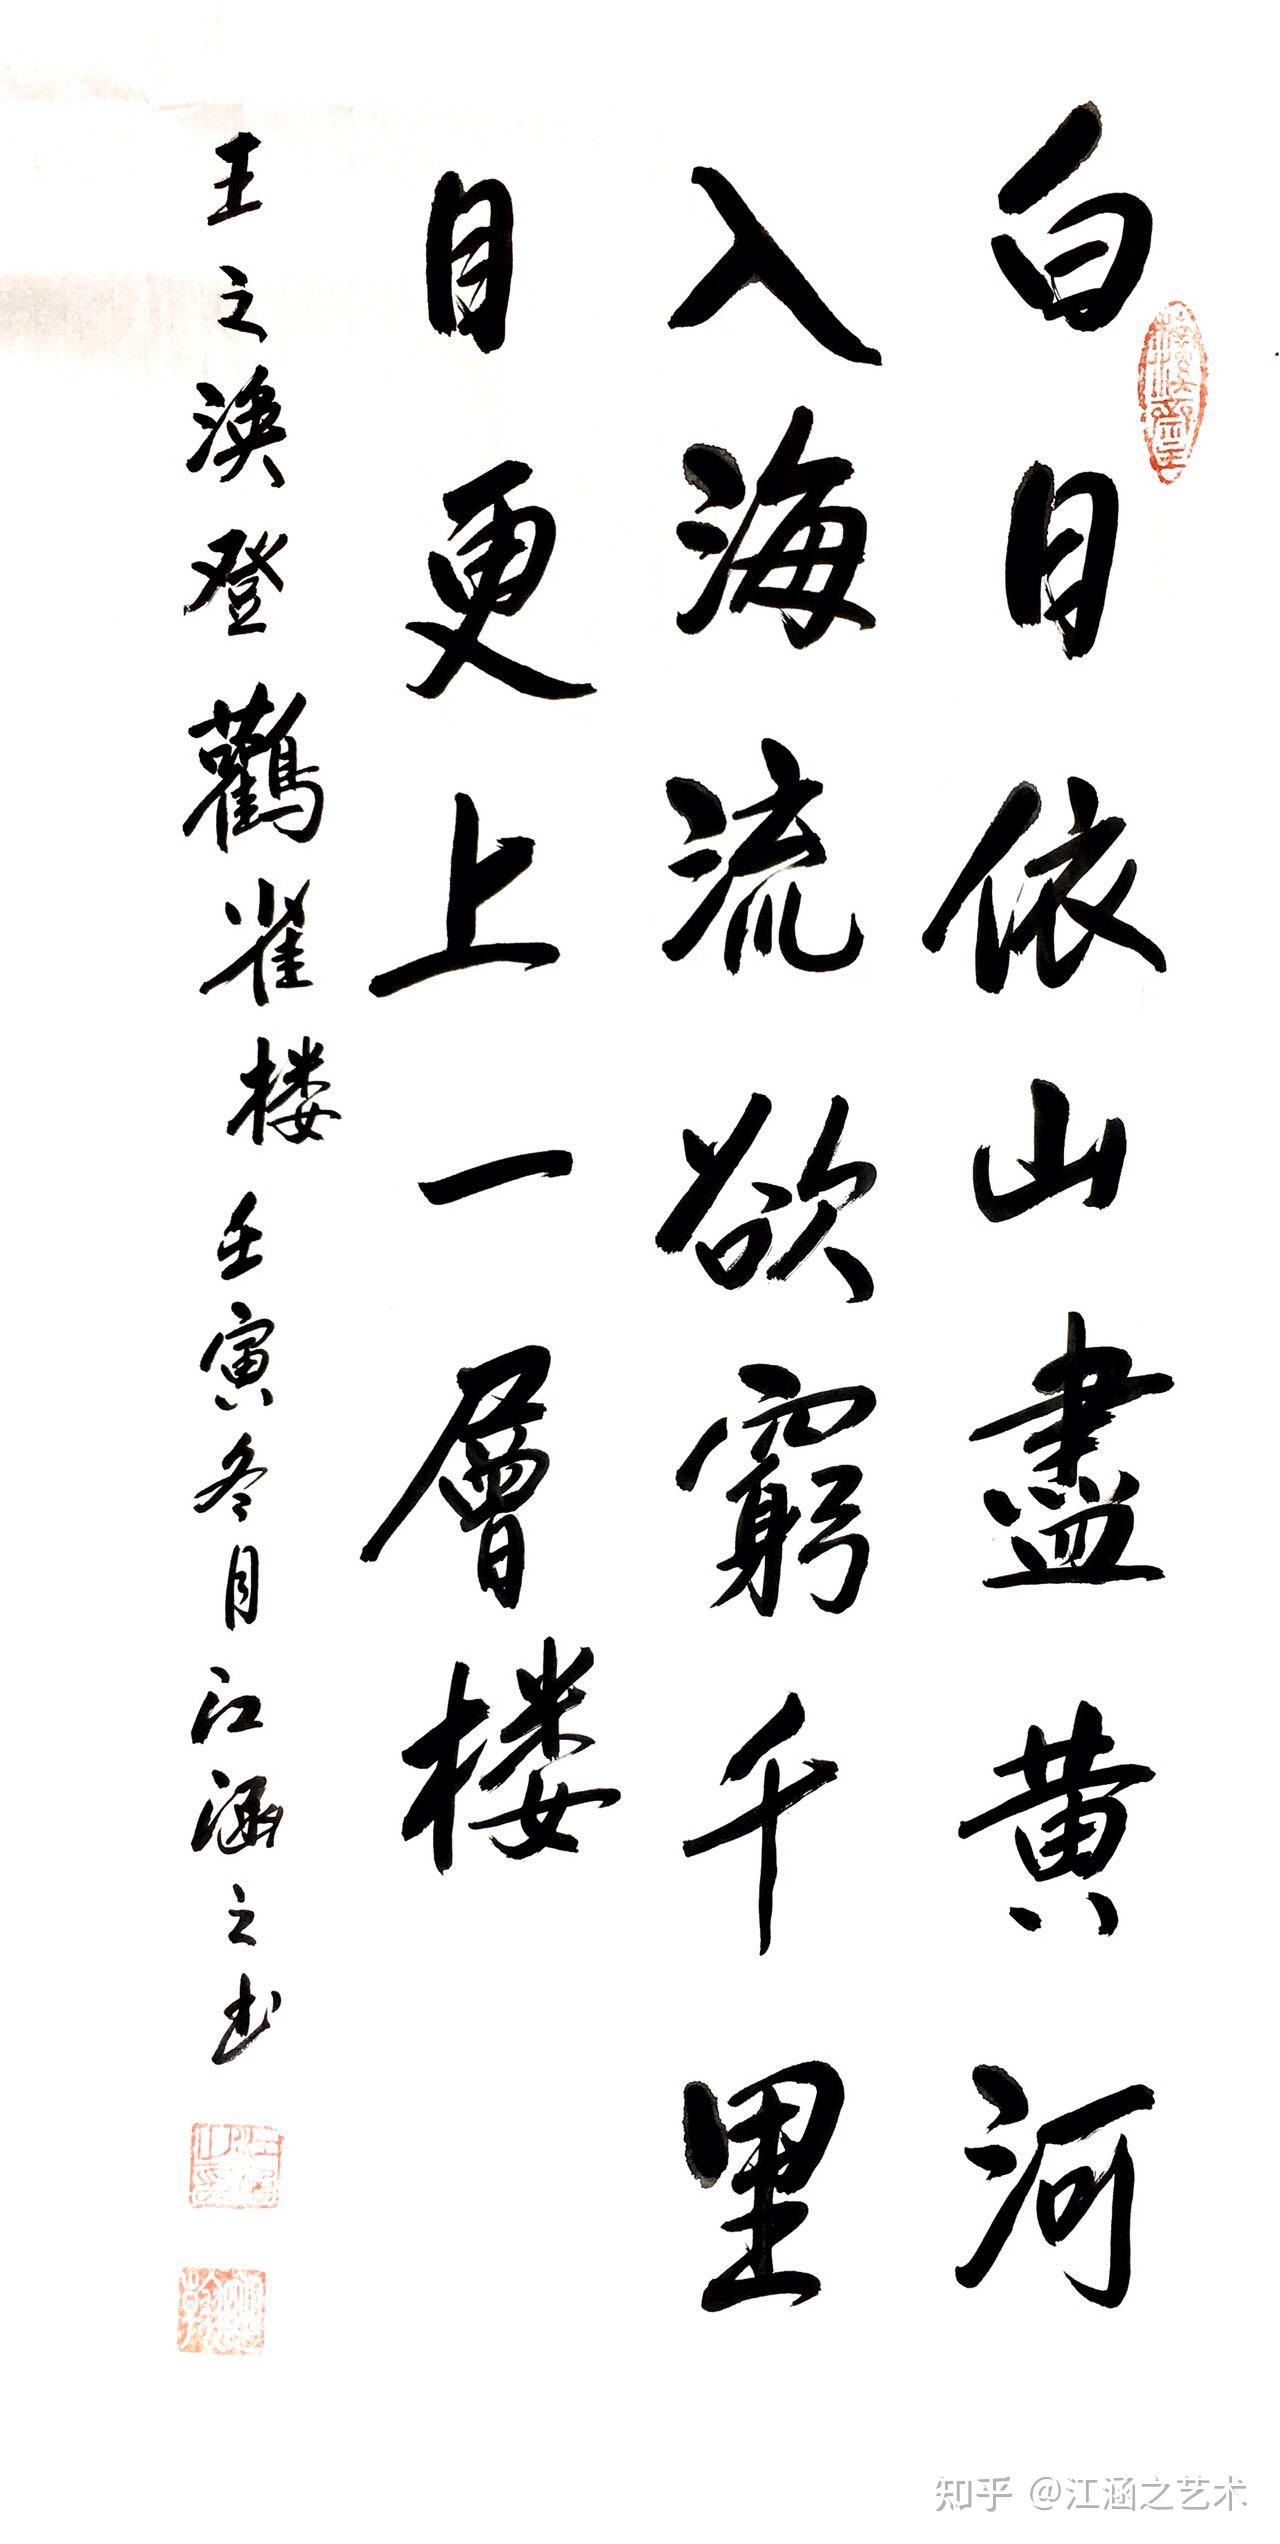 白日依山盡黄河
入海流欲窮千里
目更上一層楼
王之渙登鸛雀楼 壬寅冬月江涵之书
知乎 @江涵之艺术